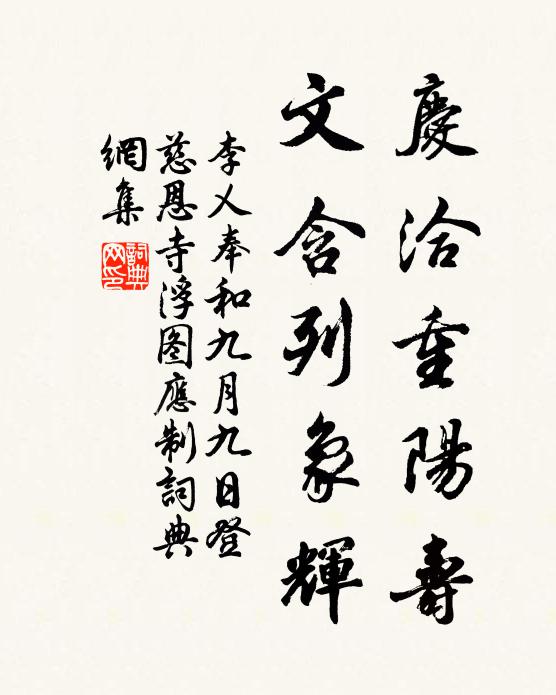 慶洽重陽壽
文含列象輝
李乂奉和九月九日登
慈恩寺浮图應制詞典
網集
詞典
网印